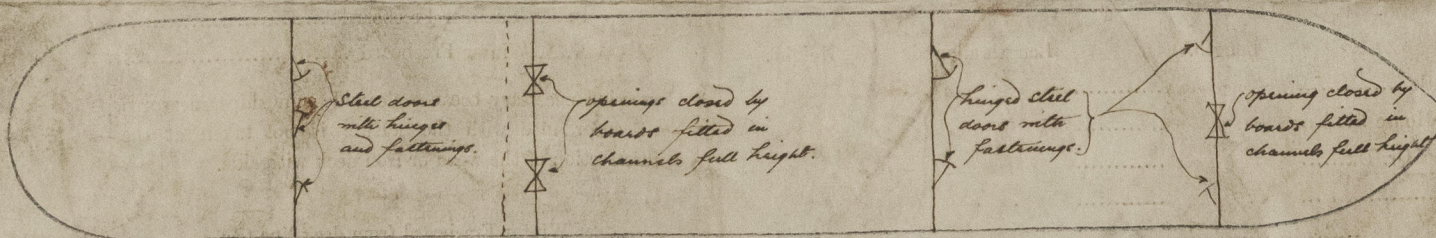 Steel doors
with hinges
and fastenings.
openings closed by
boards fitted in
channels full height.
hinged steel
doors with
fastenings.
opening closed by
boards fitted in
channels full height